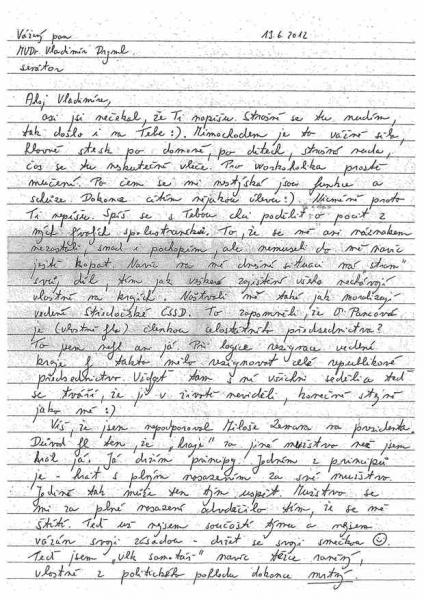 Vážený pan 19.6.2012
MUDr. Vladimír Dryml
senátor
Ahoj Vladimíre,
asi jsi nečekal, že Ti napíšu. Strašně se tu nudím,
tak došlo i na Tebe :). Mimochodem je to vážně síla,
hlavně stesk po domově, po dětech, strašná nuda,
čas se tu neskutečně vleče. Pro workoholika prostě
mučení. Po čem se mi nestýská jsou funkce a
schůze. Dokonce cítím nějakou úlevu :). Nicméně proto
Ti nepíšu. Spíš se s Tebou chci podělit o pocit z
mých bývalých spolustraníků. To, že se mě ani náznakem
nezastali snad i pochopím, ale nemuseli do mě navíc
ještě kopat. Navíc na mé dnešní situaci má strana
svůj díl, tím jak
vlastně na krajích. Naštvali mě také jak moralizují
vedení Středočeské ČSSD. To zapomněli, že P. Pancová
je (vlastně byla) členkou celostátního předsednictva?
To jsem nebyl ani já. Při logice rezignace vedení
kraje by takto mělo rezignovat celé republikové
předsednictvo. Vždyť tam s mě všichni seděli a teď
se tváří, že ji v životě neviděli, konečně stejně
jako mě :)
Víš, že jsem nepodporoval Miloše Zemana na prezidenta.
Důvod byl ten, že "hraje" za jiné mužstvo než jsem
hrál já. Já držím principy. Jedním z principů
je - hrát s plným nasazením za své mužstvo.
Jedině tak může ten tým uspět. Mužstvo se
mi za plné nasazení odvděčilo tím, že se mě
štítí. Teď už nejsem součástí týmu a nejsem
vázán svojí zásadou - držet se svojí smečkou ☺.
Teď jsem "vlk samotář" navíc těžce raněný,
vlastně z politického pohledu dokonce mrtvý.